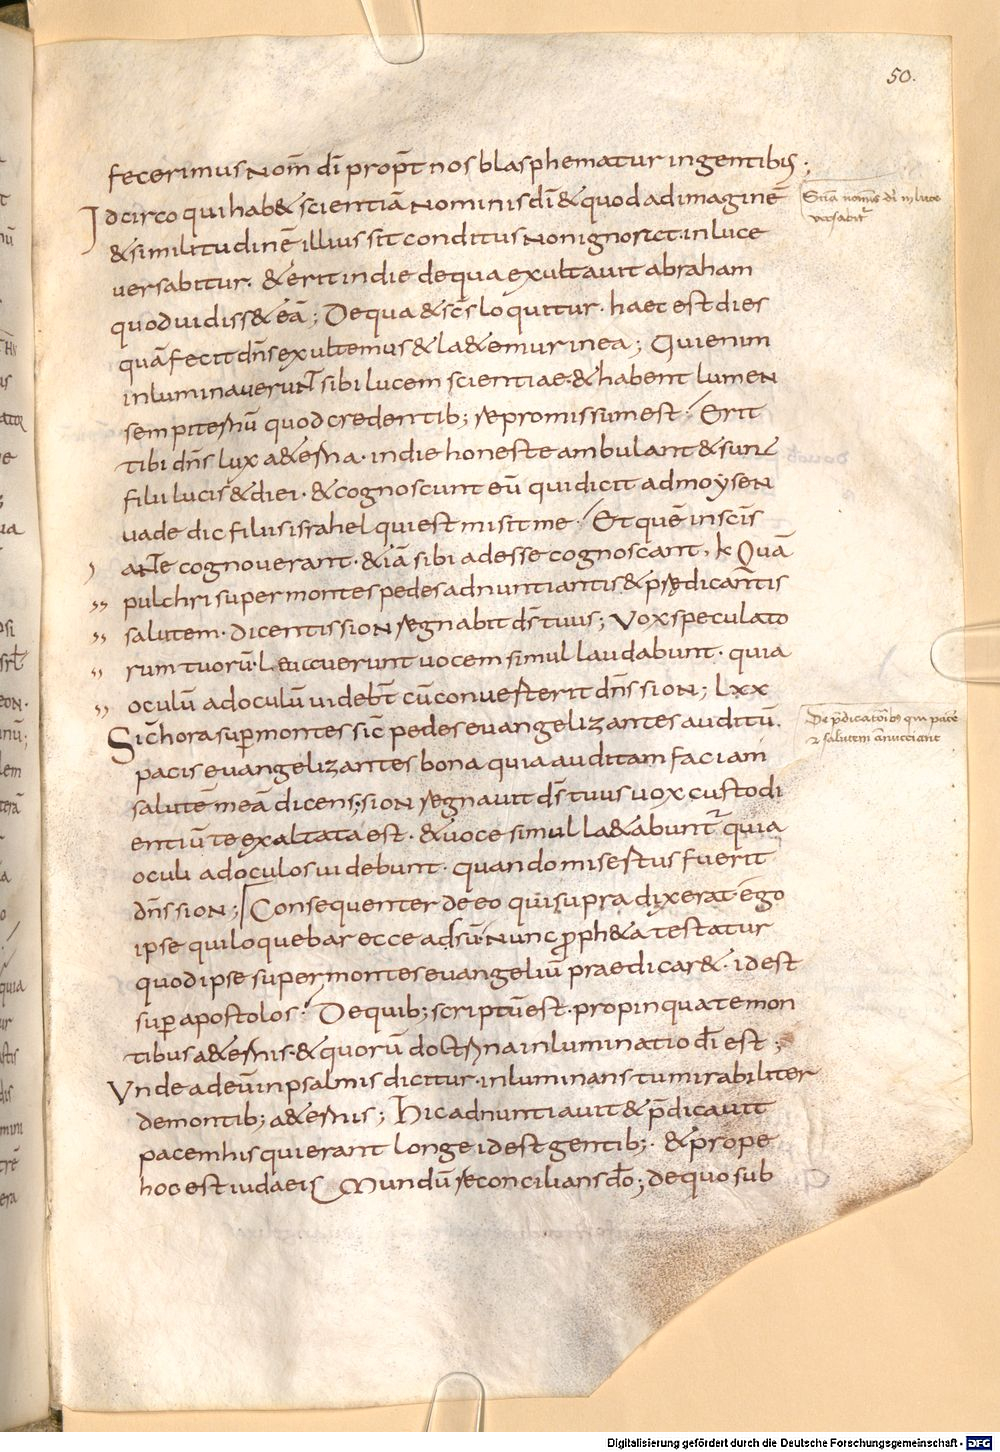 50.
fecerimus Nom̄ dī prop̄t nos blasphematur in gentibus;
Idcirco qui hab& scientiā Nominis dī & quod ad imaginē
& similitudinē illius sit conditus Non ignor&. in luce
versabitur. & erit in die de qua exultavit abraham
quod vidiss& eā; De qua & sc̄s loquitur. haec est dies
quā fecit dn̄s exultemus & la&emur in ea; Qui enim
inluminaverunt sibi lucem scientiae. & habent lumeN
sempiternū quod credentib; repromissum est. Erit
tibi dn̄s lux a&erna. in die honeste ambulant & sunt
filii lucis & diei. & cognoscunt eū qui dicit ad moysen
vade dic filiis israhel qui est misit me. Et quē in scis
ante cognoverant. & iā sibi adesse cognoscant. k Quā
pulchri super montes pedes adnuntiantis & p̄redicantis
salutem. dicentis sioN regnabit ds̄ tuus; Vox speculato
rum tuorū. Levaverunt vocem simul laudabunt. quia
oculū ad oculū videbt̄ cū converterit dn̄s sioN; Lxx
Sic̄ hora sup̄ montes sic̄ pedes evangelizantes auditū.
pacis evangelizantes bona quia auditam faciam
salutē meā dicens; sioN regnavit ds̄ tuus vox custodi
entiū te exaltata est. & voce simul la&abunt̄ quia
oculi ad oculos videbunt. quando misertus fuerit
dn̄s sioN; Consequenter de eo qui supra dixerat. ego
ipse qui loquebar ecce adsū. Nunc proph&a testatur
quod ipse super montes evangeliū praedicar&. id est
sup̄ apostolos. De quib; scriptū est. propinquate mon
tibus a&ernis. & quorū doctrina inluminatio dī est;
Vnde ad eū in psalmis dicitur. inluminans tu mirabiliter
de montib; a&ernis; Hic adnuntiavit & p̄dicavit
pacem his qui erant longe id est gentib;. & prope
hoc est iudaeis. Mundū reconcilians dō; de quo sub
Scīa nom̄is dī in luce
versabit̄
De p̄dicatorib; qui pacē
& salutem annuciant
Digitalisierung gefördert durch die Deutsche Forschungsgemeinschaft - DFG